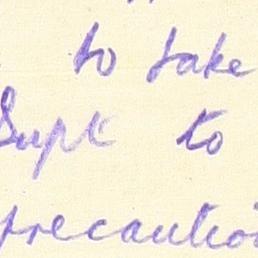 to take
Supt to
precautio